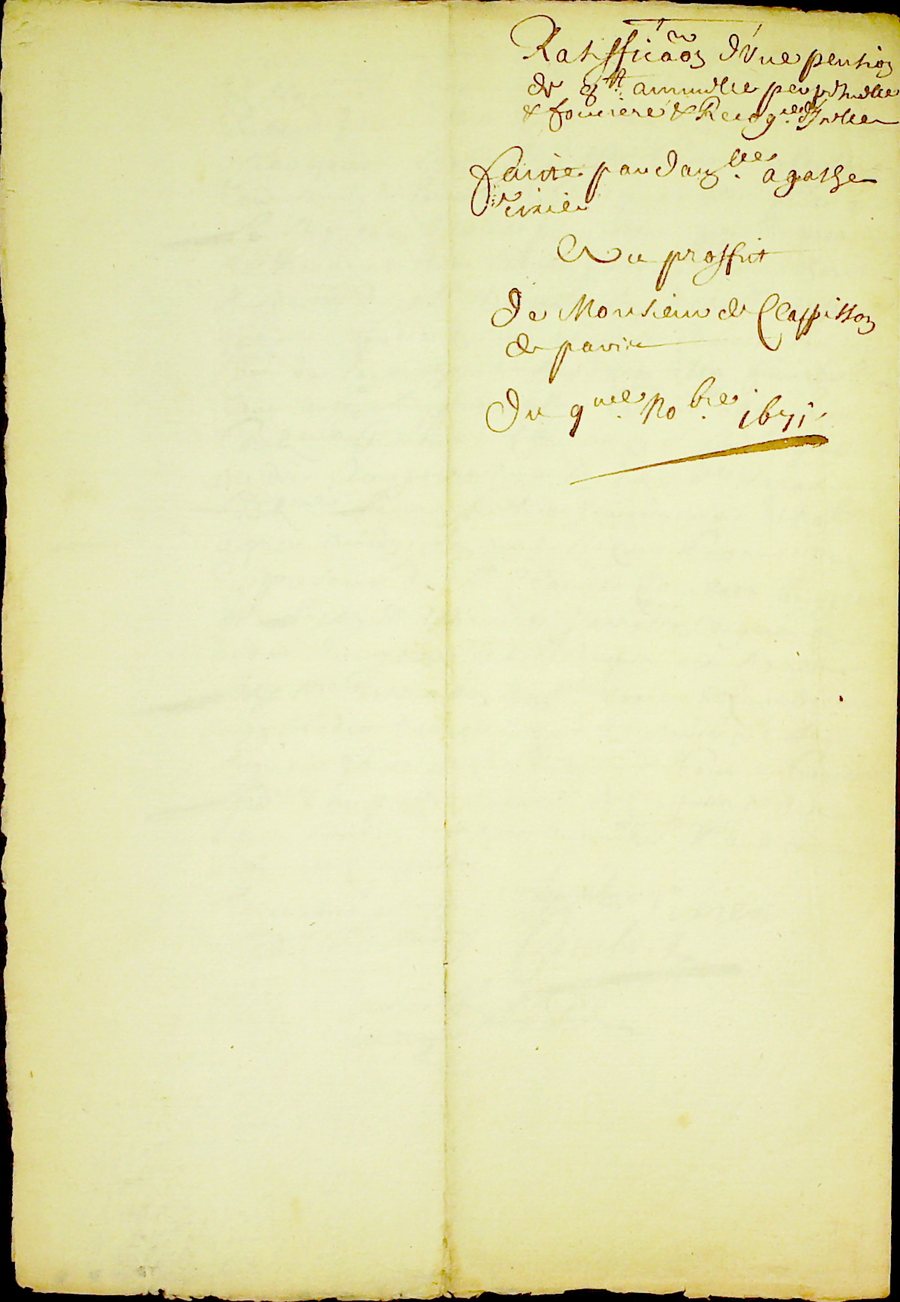 Ratifficaõn d'Vne pension
de 8tt annuelle perpetuelle
& fonciere & Recogce d'Icelle
faitte par damlle agathe
Au proffit
De Monsieur de Clappisson
de pavie
Du 9me 9obre 1671